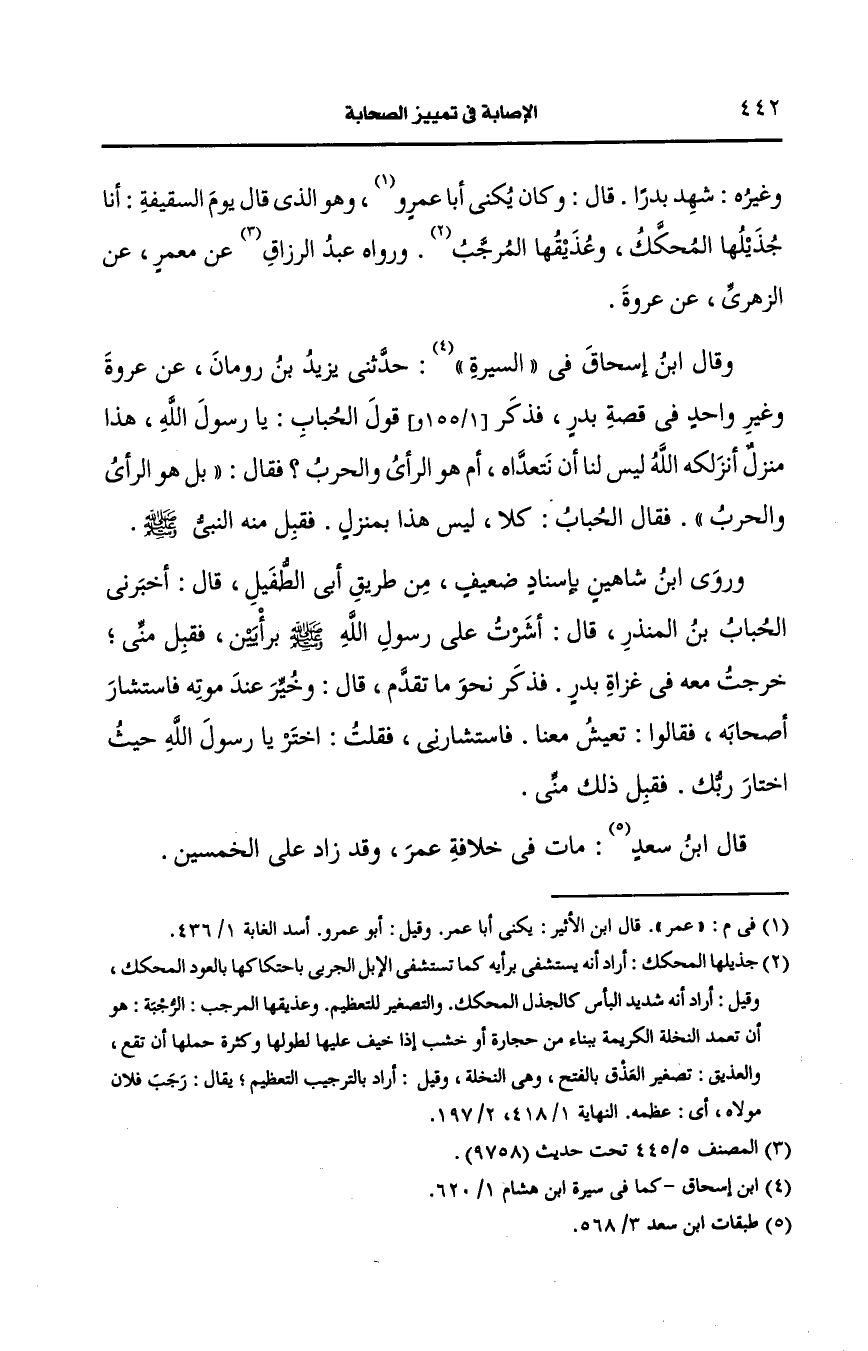 ٤٤٢ الإصابة فى تمييز الصحابة
وغيرُه : شهِد بدرًا . قال : وكان يُكنى أبا عمرٍو(١) ، وهو الذى قال يومَ السقيفةِ : أنا
جُذَيْلُها المُحكَّكُ ، وعُذَيْقُها المُرجَّبُ(٢) . ورواه عبدُ الرزاقِ(٣) عن معمرٍ ، عن
الزهرىِّ ، عن عروةَ .
وقال ابنُ إسحاقَ فى « السيرةِ »(٤) : حدَّثنى يزيدُ بنُ رومانَ ، عن عروةَ
وغيرِ واحدٍ فى قصةِ بدرٍ ، فذكَر [١/١٥٥و] قولَ الحُبابِ : يا رسولَ اللَّهِ ، هذا
منزلٌ أنزَلكه اللَّهُ ليس لنا أن نَتعدَّاه ، أم هو الرأىُ والحربُ ؟ فقال : « بل هو الرأىُ
والحربُ » . فقال الحُبابُ : كلا ، ليس هذا بمنزلٍ . فقبِل منه النبىُّ ﷺ .
وروَى ابنُ شاهينٍ بإسنادٍ ضعيفٍ ، مِن طريقِ أبى الطُّفَيلِ ، قال : أخبَرنى
الحُبابُ بنُ المنذرِ ، قال : أشَرْتُ على رسولِ اللَّهِ ﷺ برأْيَيْن ، فقبِل منِّى ؛
خرجتُ معه فى غزاةِ بدرٍ . فذكَر نحوَ ما تقدَّم ، قال : وخُيِّرَ عندَ موتِه فاستشارَ
أصحابَه ، فقالوا : تعيشُ معنا . فاستشارنِى ، فقلتُ : اختَرْ يا رسولَ اللَّهِ حيثُ
اختارَ ربُّك . فقبِل ذلك منِّى .
قال ابنُ سعدٍ(٥) : مات فى خلافةِ عمرَ ، وقد زاد على الخمسين .
(١) فى م : « عمر ». قال ابن الأثير : يكنى أبا عمر. وقيل : أبو عمرو. أسد الغابة ١/ ٤٣٦.
(٢) جذيلها المحكك : أراد أنه يستشفى برأيه كما تستشفى الإبل الجربى باحتكاكها بالعود المحكك ،
وقيل : أراد أنه شديد البأس كالجذل المحكك. والتصغير للتعظيم. وعذيقها المرجب : الرُّجْبَة : هو
أن تعمد النخلة الكريمة ببناء من حجارة أو خشب إذا خيف عليها لطولها وكثرة حملها أن تقع ،
والعذيق : تصغير العَذْق بالفتح ، وهى النخلة ، وقيل : أراد بالترجيب التعظيم ؛ يقال : رَجَبَ فلان
مولاه ، أى : عظمه. النهاية ١/ ٤١٨، ٢/ ١٩٧.
(٣) المصنف ٥/ ٤٤٥ تحت حديث (٩٧٥٨) .
(٤) ابن إسحاق - كما فى سيرة ابن هشام ١/ ٦٢٠.
(٥) طبقات ابن سعد ٣/ ٥٦٨.